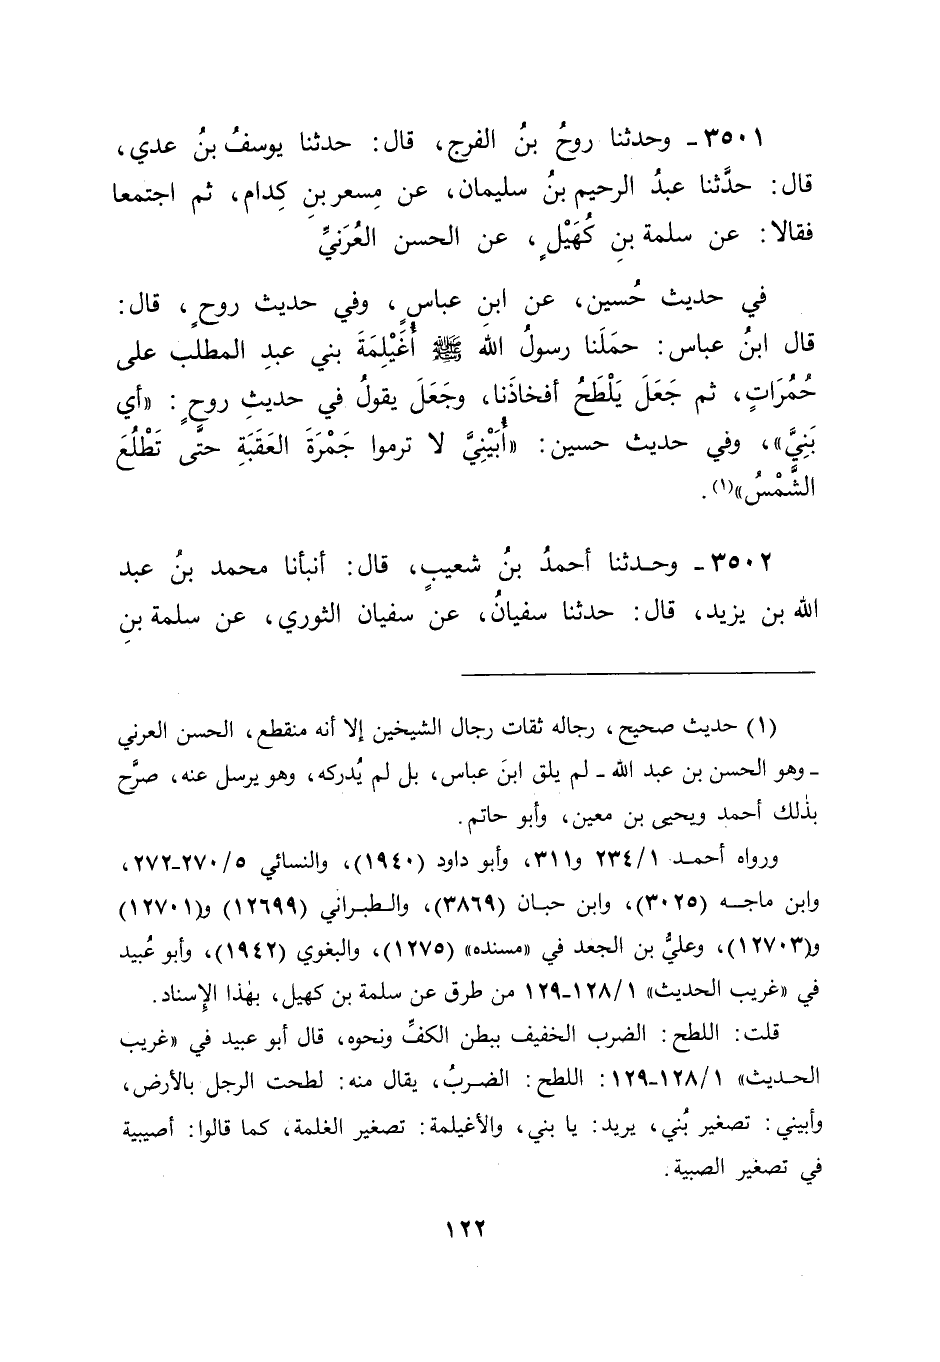 ٣٥٠١ـ وحدثنا روحُ بنُ الفرج، قال: حدثنا يوسفُ بنُ عدي،
قال: حدَّثنا عبدُ الرحيم بنُ سليمان، عن مِسعر بنِ كِدام، ثم اجتمعا
فقالا: عن سلمة بنِ كُهَيْلٍ، عن الحسن العُرَنيِّ
في حديث حُسين، عن ابنِ عباسٍ، وفي حديث روحٍ، قال:
قال ابنُ عباس: حمَلَنا رسولُ الله ﷺ أُغَيْلِمَةَ بني عبدِ المطلب على
حُمُرَاتٍ، ثم جَعَلَ يَلْطَحُ أفخاذَنا، وجَعَلَ يقولُ في حديثِ روحٍ: «أي
بَنِيَّ»، وفي حديث حسين: «أُبَيْنِيَّ لا ترموا جَمْرَةَ العَقَبَةِ حتَّى تَطْلُعَ
الشَّمْسُ»(١).
٣٥٠٢ـ وحدثنا أحمدُ بنُ شعيبٍ، قال: أنبأنا محمد بنُ عبد
الله بن يزيد، قال: حدثنا سفيانُ، عن سفيان الثوري، عن سلمة بنِ
(١) حديث صحيح، رجاله ثقات رجال الشيخين إلا أنه منقطع، الحسن العرني
ـ وهو الحسن بن عبد الله ـ لم يلق ابنَ عباس، بل لم يُدركه، وهو يرسل عنه، صرَّح
بذٰلك أحمد ويحيى بن معين، وأبو حاتم.
ورواه أحمد ٢٣٤/١ و٣١١، وأبو داود (١٩٤٠)، والنسائي ٢٧٠/٥ـ٢٧٢،
وابن ماجه (٣٠٢٥)، وابن حبان (٣٨٦٩)، والطبراني (١٢٦٩٩) و(١٢٧٠١)
و(١٢٧٠٣)، وعليُّ بن الجعد في «مسنده» (١٢٧٥)، والبغوي (١٩٤٢)، وأبو عُبيد
في «غريب الحديث» ١٢٨/١ـ١٢٩ من طرق عن سلمة بن كهيل، بهٰذا الإِسناد.
قلت: اللطح: الضرب الخفيف ببطن الكفِّ ونحوه، قال أبو عبيد في «غريب
الحديث» ١٢٨/١ـ١٢٩: اللطح: الضربُ، يقال منه: لطحت الرجل بالأرض،
وأبيني: تصغير بُني، يريد: يا بني، والأغيلمة: تصغير الغلمة، كما قالوا: أصيبية
في تصغير الصبية.
١٢٢